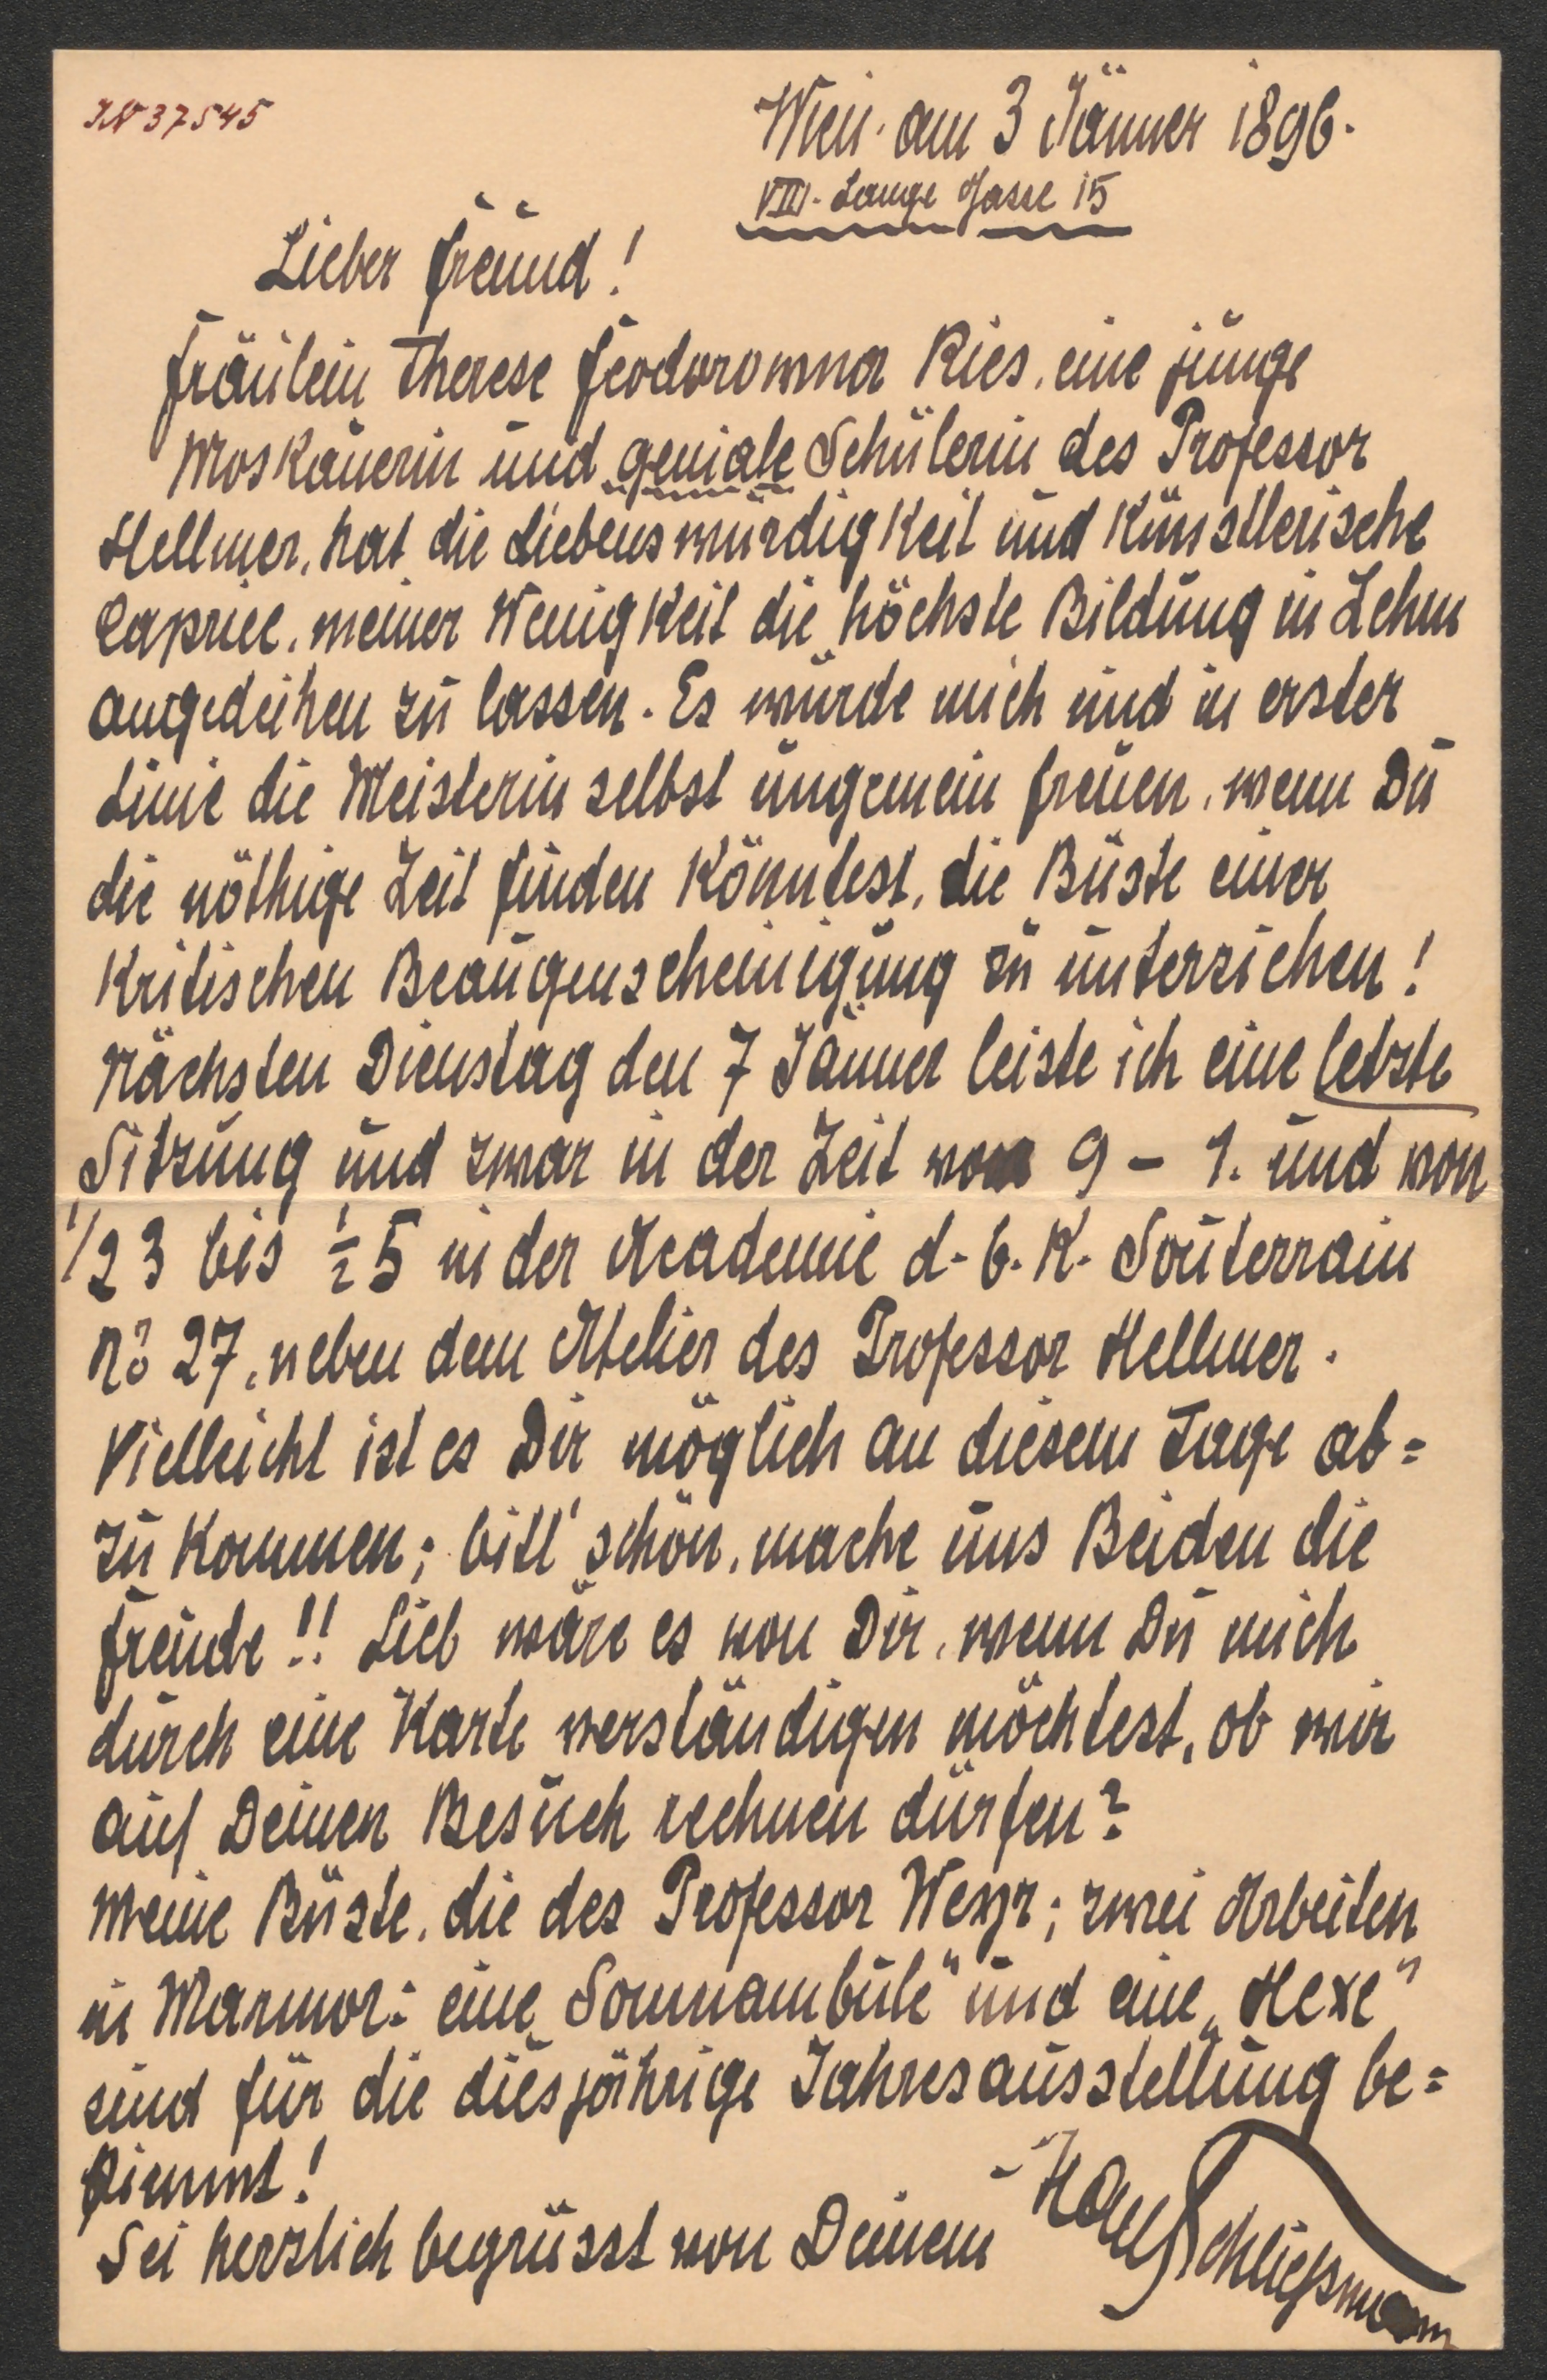 IN 37545
Wien. am 3 Jänner 1896.
VIII. Lange Gasse 15
Lieber Freund!
Fräulein Therese Feodorowna Ries, eine junge
Moskauerin und geniale Schülerin des Professor
Hellmer, hat die Liebenswürdigkeit und künstlerische
Caprice, meiner Wenigkeit die höchste Bildung in Lehm
angedeihen zu lassen. Es würde mich und in erster
Linie die Meisterin selbst ungemein freuen, wenn Du
die nöthige Zeit finden könntest, die Büste einer
kritischen Beaugenscheinigung zu unterziehen!
Nächsten Dienstag den 7 Jänner leiste ich eine letzte
Sitzung und zwar in der Zeit von 9 - 1. und von
1/2 3 bis 1/2 5 in der Academie d. b. K. Souterrain
No 27, neben dem Atelier des Professor Hellmer.
Vielleicht ist es Dir möglich an diesem Tage ab=
zu kommen; bitt' schön, mache uns Beiden die
Freude!! Lieb wäre es von Dir, wenn Du mich
durch eine Karte verständigen möchtest, ob wir
auf Deinen Besuch rechnen dürfen?
Meine Büste, die des Professor Weyr; zwei Arbeiten
in Marmor: eine „Somnambule" und eine „Hexe"
sind für die diesjährige Jahresausstellung be=
stimmt!
Sei herzlich begrüsst von Deinem
Hans Schließmann